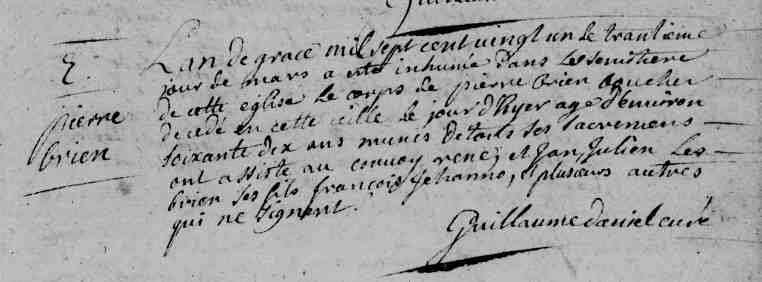 S.
pierre
brien
L an de grace mil sept cent vingt un le trantieme
jour de mars a esté inhumé dans le semitiere
de cette eglise le corps de pierre brien boucher
decedé en cette ville le jour d'hyer agé d'environ
soixante dix ans munis de touts ses sacremens
ont assisté au convoy rene, et Jan, Julien Les
brien ses fils françois Jehanno, plusieurs autres
qui ne signent.
Guillaume daniel curé